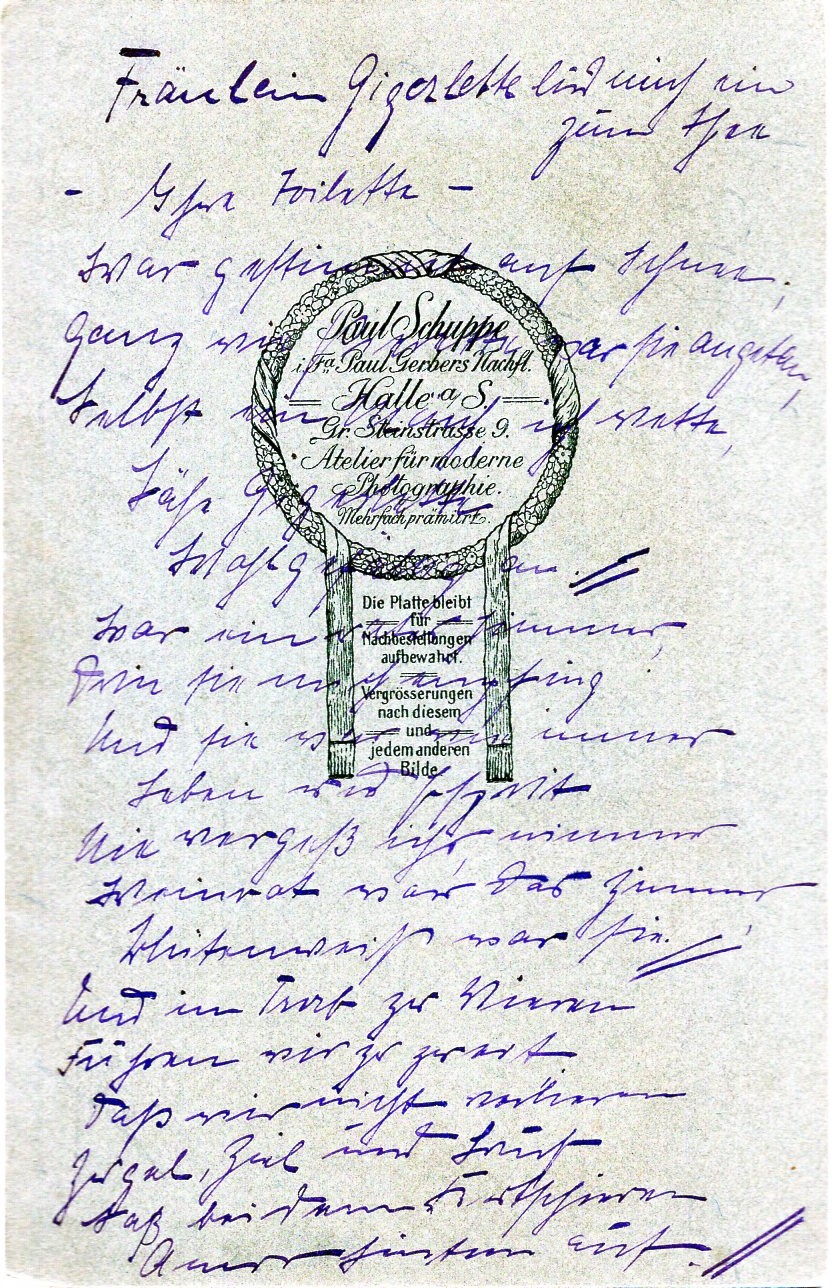 Fräulein Gigerlette lud mich ein
zum Thee
- Ihre Toilette -
War gestimmt auf Schnee;
Ganz wie Pierrette war sie angetan,
Selbst ein Mönch, ich wette,
Sähe Gigerlette
Wohlgefällig an.
War ein rotes Zimmer,
Drin sie mich empfing
Und sie war wie immer
Leben und Esprit
Nie vergeß ichs, nimmer
Weinrot war das Zimmer
Blütenweiß war sie.
Und im Trab zu Vieren
Führen wir zu zweit
Daß wir nicht verlieren
Zügel, Ziel und Lauf
Saß bei dem Kutschieren
Amor hinten auf.
Paul Schuppe
i. Fa. Paul Gerbers Nachfl.
Halle a S.
Gr. Steinstrasse 9.
Atelier für moderne
Photographie.
Mehrfach prämiirt.
Die Platte bleibt
für
Nachbestellungen
aufbewahrt.
Vergrösserungen
nach diesem
und
jedem anderen
Bilde.